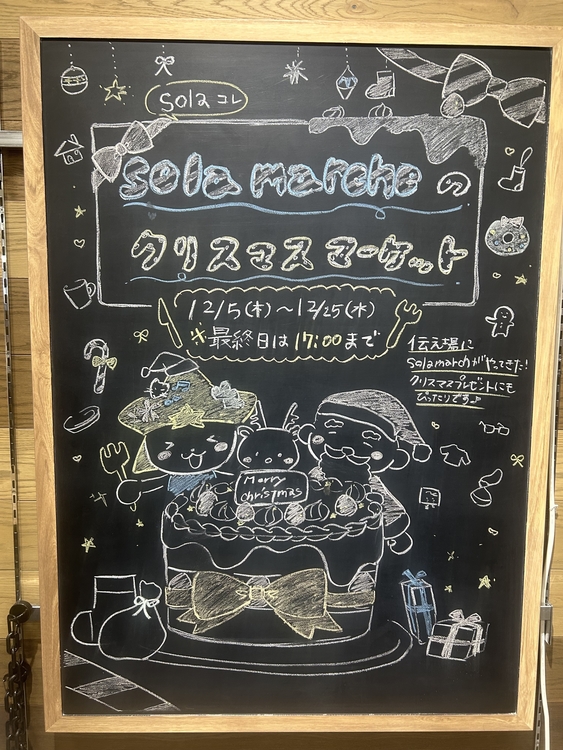 solaコレ
sola marcheの
クリスマスマーケット
12/5(木)～12/25(水)
※最終日は17:00まで
伝え場に
solamarchがやってきた!
クリスマスプレゼントにも
ぴったりです♪
Merry
christmas